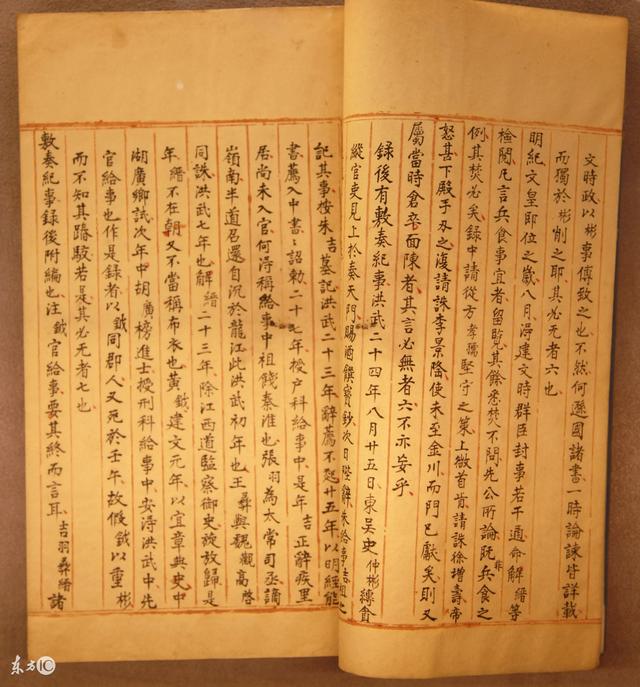 文時政以彬事傅致之也不然何遜國諸書一時論諫皆詳載
而獨於彬削之耶其必无者六也
明紀文皇即位之歲八月淂建文時群臣封事若干通命解縉等
檢閱凡言兵食事宜者留覽其餘悉焚不問先公所論既非兵食之
例其焚必矣録中請從方孝孺堅守之策上微首肯請誅徐增壽帝
怒甚下殿手刃之復請誅李景隆使未至金川而門已獻矣則又
屬當時倉卒面陳者其言必無者六不亦妄乎
録後有敷奏紀事洪武二十四年八月廿五日東吴史仲彬縛貪
縱官吏見上於奏天門賜酒饌寶鈔次日陛辭朱給事吉祖之
記其事按朱吉墓記洪武二十三年辭薦不起廿五年以明經能
書薦入中書〻詔勅二十七年授户科給事中是年吉正辭疾里
居尚未入官何淂稱給事中祖餞秦淮也張羽為太常司丞謫
嶺南半道召還自沉於龍江此洪武初年也王彞與魏觀高啓
同誅洪武七年也解縉二十三年除江西道監察御史旋放歸是
年縉不在朝又不當稱布衣也黄鉞建文元年以宜章典史中
湖廣鄉試次年中胡廣榜進士授刑科給事中安淂洪武中先
官給事也作是録者以鉞同郡人又死於壬年故假鉞以重彬
而不知其踳駮若是其必无者七也
敷奏紀事録後附編也注鉞官給事要其終而言耳吉羽彞縉諸
东方IC